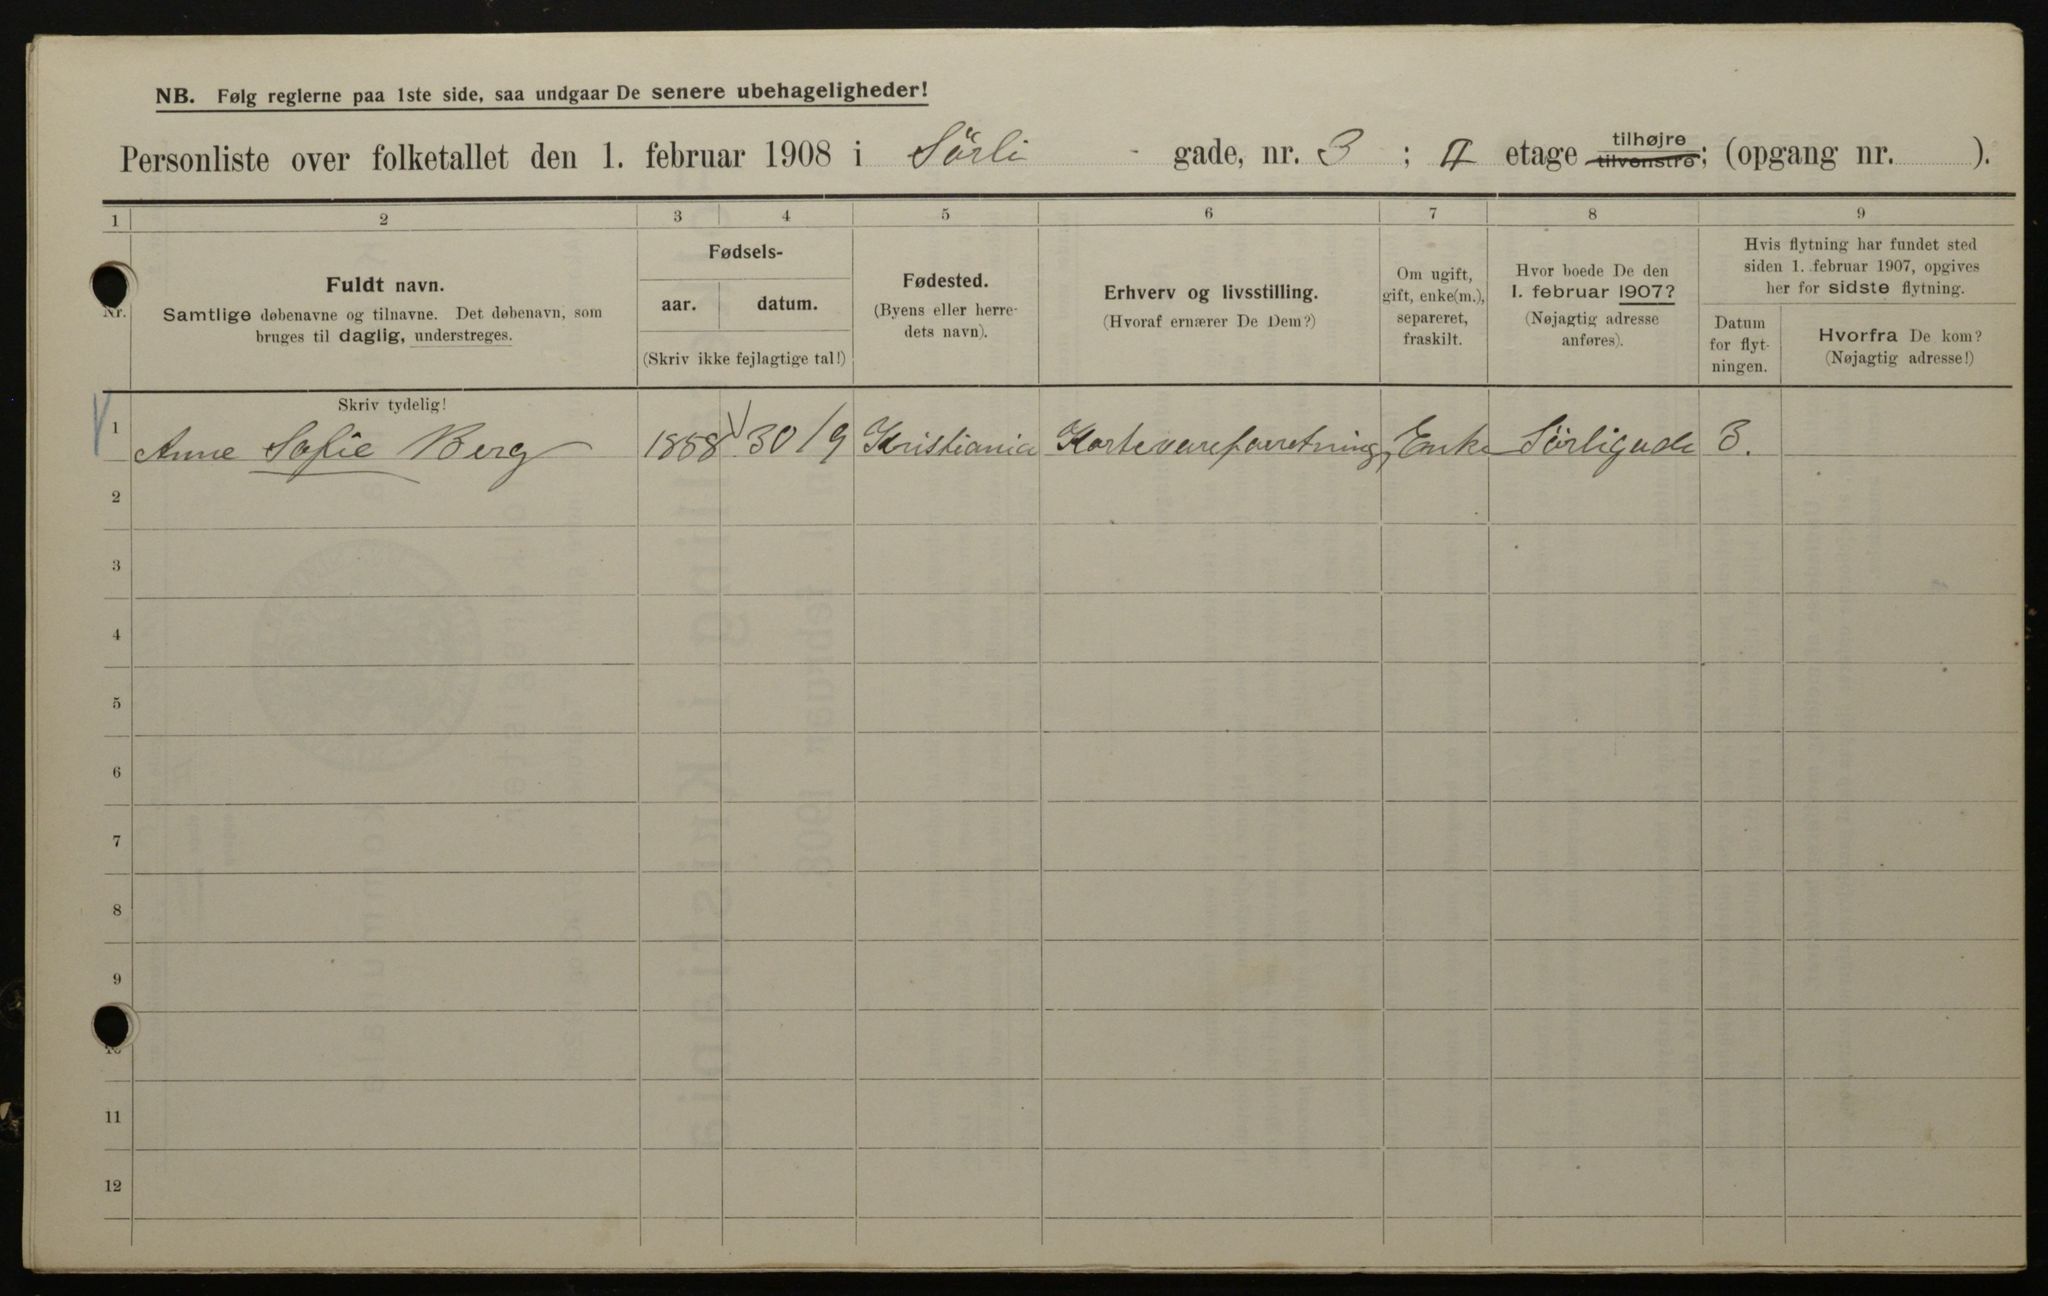 NB. Følg reglerne paa 1ste side, saa undgaar De senere ubehageligheder!
Personliste over folketallet den 1. februar 1908 i Sörli gade, nr. 3 ; II etage tilhøjre tilvenstre; (opgang nr. ).
1 2 3 4 5 6 7 8 9
Nr.
Fuldt navn.
Samtlige døbenavne og tilnavne. Det døbenavn, som
bruges til daglig, understreges.
Fødsels-
aar. datum.
(Skriv ikke fejlagtige tal!)
Fødested.
(Byens eller herre-
dets navn).
Erhverv og livsstilling.
(Hvoraf ernærer De Dem?)
Om ugift,
gift, enke(m.),
separeret,
fraskilt.
Hvor boede De den
1. februar 1907?
(Nøjagtig adresse
anføres).
Hvis flytning har fundet sted
siden 1. februar 1907, opgives
her for sidste flytning.
Datum
for flyt-
ningen.
Hvorfra De kom?
(Nøjagtig adresse!)
Skriv tydelig!
1 Anne Sofie Berg 1858 30/9 Kristiania Kortevareforretning Enke Sörligade 3.
2
3
4
5
6
7
8
9
10
11
12